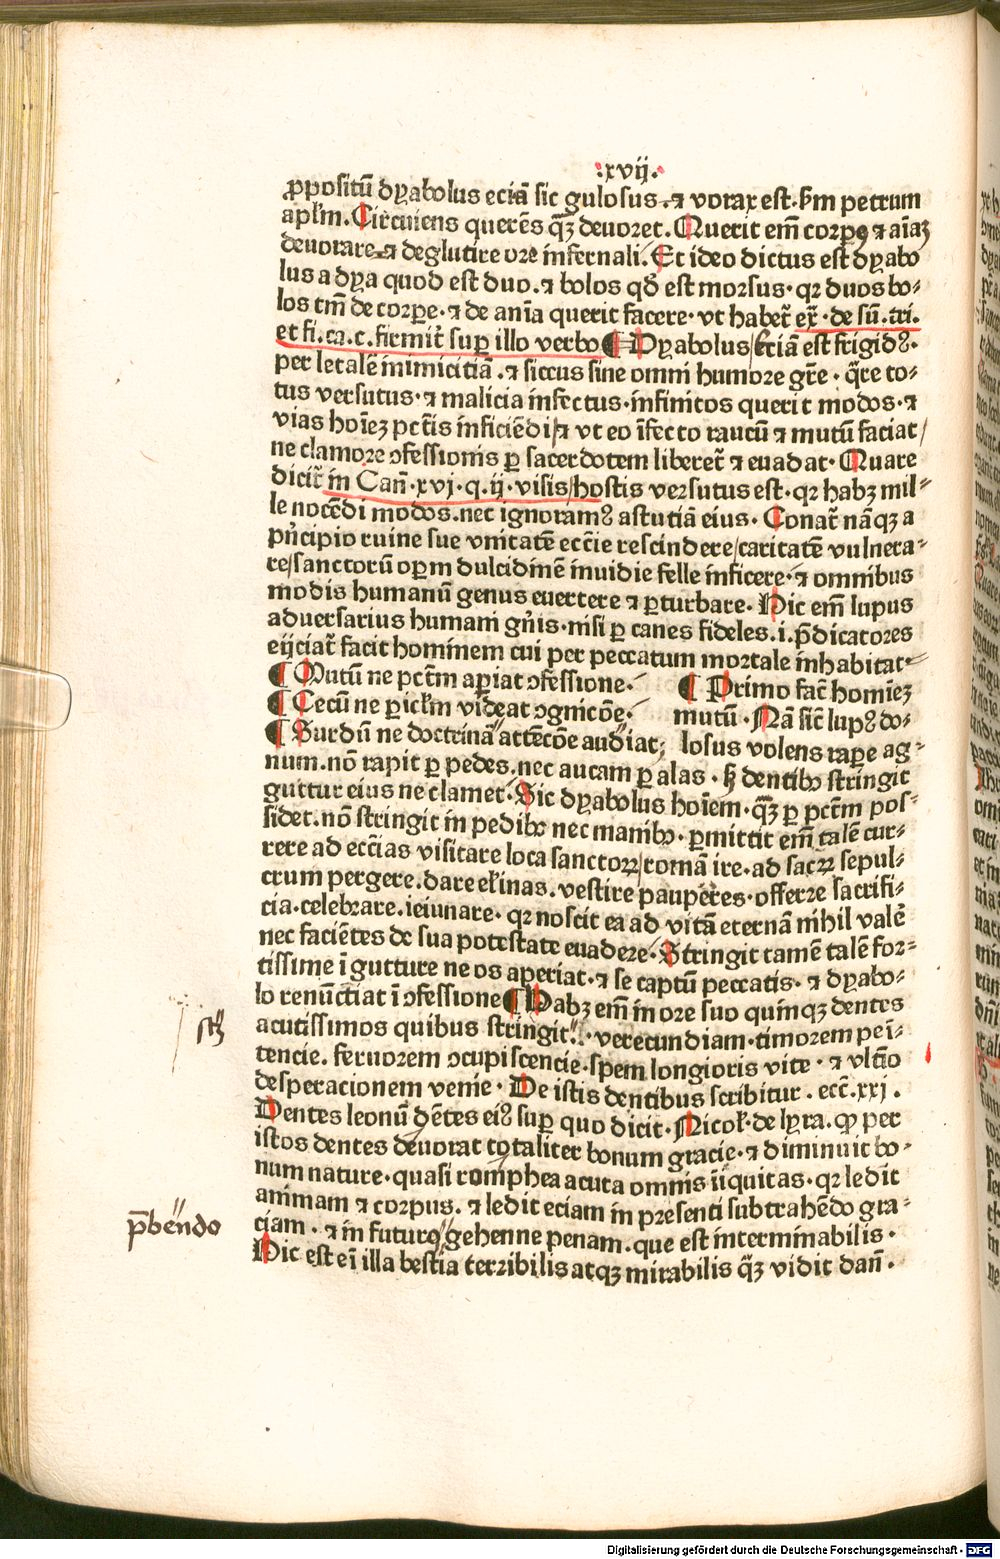 .xvij.
ꝓpositū dyabolus eciā sic gulosus ⁊ vorax est. sm̄ petrum
apl̄m. Circuiens querēs quē deuoret. Querit em̄ corpꝰ ⁊ aīaꝫ
deuorare ⁊ deglutire ore infernali. Et ideo dictus est dyabo
lus a dya quod est duo. ⁊ bolos qd̄ est morsus. qr duos bo-
los tm̄ de corpe. ⁊ de aīa querit facere. vt habet̄ ex̄. de sū. tri.
et fi. ca. c. firmit̄ suꝑ illo verbo ¶ Dyabolus/ Eciā est frigidꝰ.
per letalē inimicitiā. ⁊ siccus sine omni humore gr̄e. q̄re to-
tus versutus. ⁊ malicia infectus. infinitos querit modos. ⁊
vias hoīeꝫ pct̄is inficiēdi/ ⁊ vt eo īfecto raucū ⁊ mutū faciat/
ne clamore ꝯfessionis ꝑ sacerdotem liberet̄ ⁊ euadat. Quare
dicit̄ in Can̄. xvj. q. ij. visis/ hostis versutus est. qr habꝫ mil-
le nocēdi modos. nec ignoramꝰ astutiā eius. Conat̄ nāqꝫ a
pn̄cipio ruine sue vnitatē eccl̄ie rescindere/ caritatē vulnera-
re/ sanctorū oꝑm dulcidinē inuidie felle inficere. ⁊ omnibus
modis humanū genus euertere ⁊ ꝑturbare. Hic em̄ lupus
aduersarius humani gn̄is. nisi ꝑ canes fideles. i. p̄dicatores
eijciat̄ facit hominem cui per peccatum mortale inhabitat
¶ Mutū ne pct̄m aꝑiat ꝯfessione.
¶ Cecū ne ꝑicl̄m videat ꝯgnicōe.
¶ Surdū ne doctrinā attēcōe audiat;
¶ Primo fac̄ homīeꝫ
mutū. Nā sic̄ lupꝰ do-
losus volens raꝑe ag-
num. nō rapit ꝑ pedes. nec aucam ꝑ alas. sꝫ dentibꝰ stringit
guttur eius ne clamet. Sic dyabolus hoīem. quē ꝑ ꝑ pct̄m pos-
sidet. nō stringit in pedibꝰ nec manibꝰ. ꝑmittit em̄ talē cur-
rere ad eccl̄ias visitare loca sanctoꝝ/ romā ire. ad sacꝝ sepul-
crum pergere. dare el̄inas. vestire pauperes. offerre sacrifi-
cia. celebrare. ieiunare. qr noscit ea ad vitā eternā nihil valē
nec faciētes de sua potestate euadere. Stringit tamē talē for-
tissime ī gutture ne os aperiat. ⁊ se captū peccatis. ⁊ dyabo-
lo renūctiat ī ꝯfessione ¶ Habꝫ em̄ in ore suo quinqꝫ dentes
acutissimos quibus stringit. verecundiam. timorem peī-
tencie. feruorem ꝯcupiscencie. spem longioris vite. ⁊ vltiō
desperacionem venie. De istis dentibus scribitur. ecc̄. xxj.
Dentes leonū dētes eiꝰ suꝑ quo dicit. Nicol̄. de lyra. ꝙ per
istos dentes deuorat totaliter bonum gracie. ⁊ diminuit bo-
num nature. quasi romphea acuta omnis īiquitas. qr ledit
animam ⁊ corpus. ⁊ ledit eciam in presenti subtrahēdo gra-
ciam. ⁊ in futuro gehenne penam. que est interminabilis.
Hic est eī illa bestia terribilis atqꝫ mirabilis quē vidit dan̄.
p̄bendo
Digitalisierung gefördert durch die Deutsche Forschungsgemeinschaft - DFG